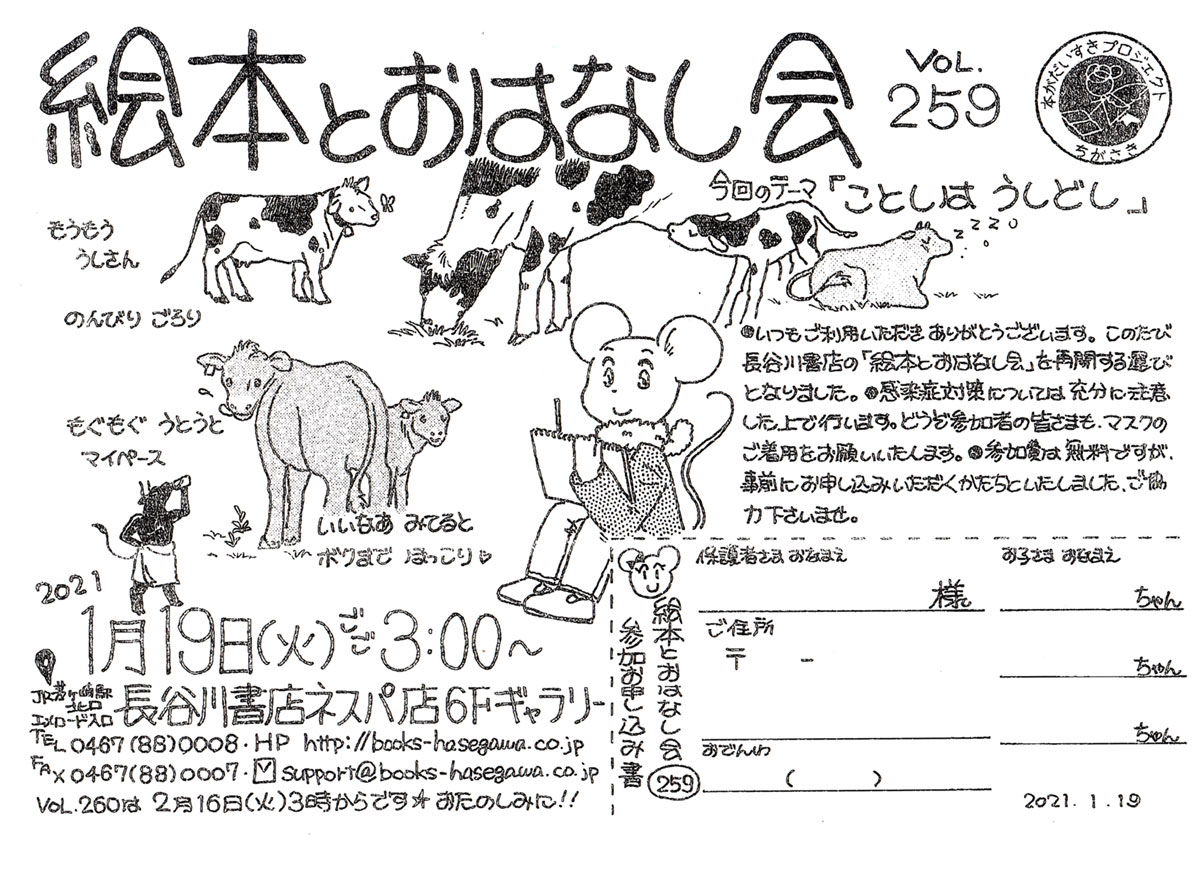 絵本とおはなし会
VOL.
259
本がだいすきプロジェクト
ちがさき
今回のテーマ「ことしは うしどし」
zzzo
もうもう
うしさん
のんびり ごろり
もぐもぐ うとうと
マイペース
いいなあ みてると
ボクまで ほっこり♡
●いつもご利用いただき ありがとうございます。このたび
長谷川書店の「絵本とおはなし会」を再開する運び
となりました。●感染症対策については充分に注意
した上で行います。どうぞ参加者の皆さまも、マスクの
ご着用をお願いいたします。●参加費は無料ですが、
事前にお申し込みいただくかたちといたしました、ご協
力下さいませ。
2021
1月19日(火)ごご3:00〜
JR茅ヶ崎駅
北口
エメロード入口
長谷川書店ネスパ店6Fギャラリー
TEL 0467(88)0008・HP http://books-hasegawa.co.jp
FAX 0467(88)0007・support@books-hasegawa.co.jp
VOL.260は 2月16日(火)3時からです☆ おたのしみに!!
絵本とおはなし会
参加お申し込み書
259
保護者さま おなまえ
様
お子さま おなまえ
ちゃん
ご住所
〒 -
ちゃん
ちゃん
おでんわ
( )
2021.1.19